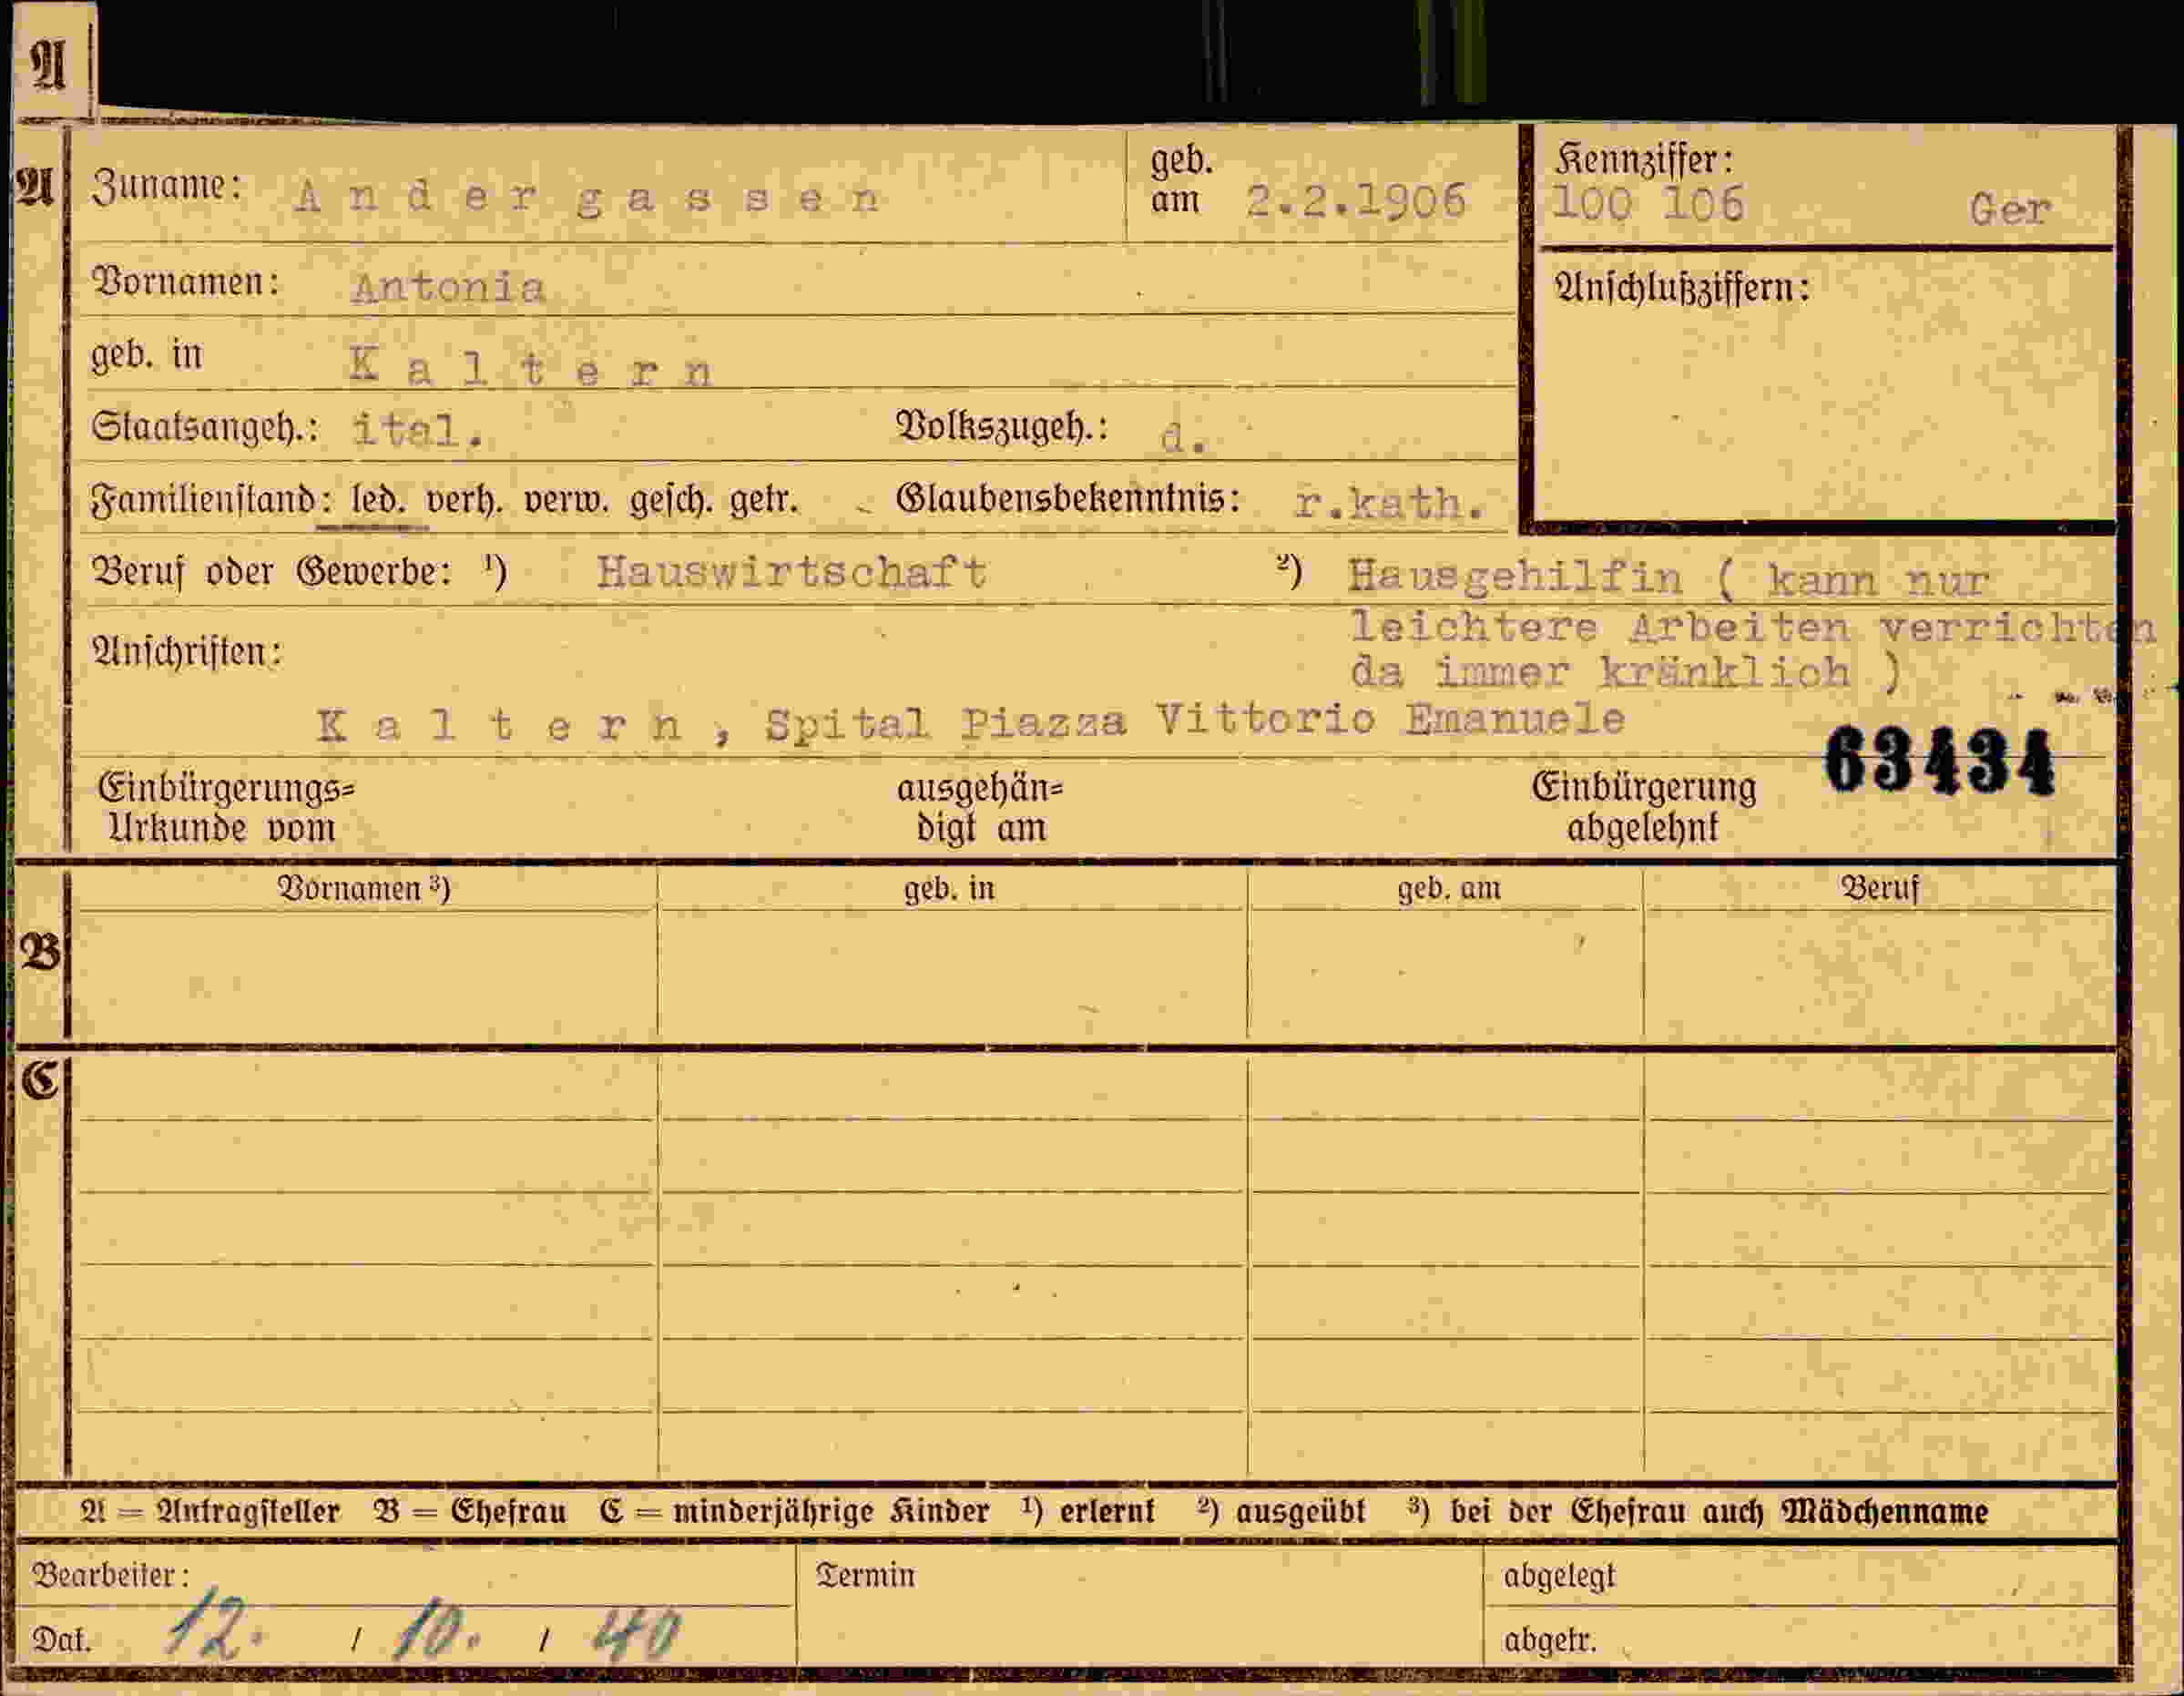 A
A Zuname: Andergassen geb. am 2.2.1906 Kennziffer: 100 106 Ger
Vornamen: Antonia Anschlußziffern:
geb. in Kaltern
Staatsangeh.: ital. Volkszugeh.: d.
Familienstand: led. verh. verw. gesch. getr. Glaubensbekenntnis: r.kath.
Beruf oder Gewerbe: ¹) Hauswirtschaft ²) Hausgehilfin ( kann nur
leichtere Arbeiten verrichten
Anschriften: da immer kränklich )
Kaltern, Spital Piazza Vittorio Emanuele
63434
Einbürgerungs=
Urkunde vom
ausgehän=
digt am
Einbürgerung
abgelehnt
Vornamen ³) geb. in geb. am Beruf
B
C
A = Antragsteller B = Ehefrau C = minderjährige Kinder ¹) erlernt ²) ausgeübt ³) bei der Ehefrau auch Mädchenname
Bearbeiter: Termin abgelegt
Dat. 12. / 10. / 40 abgetr.